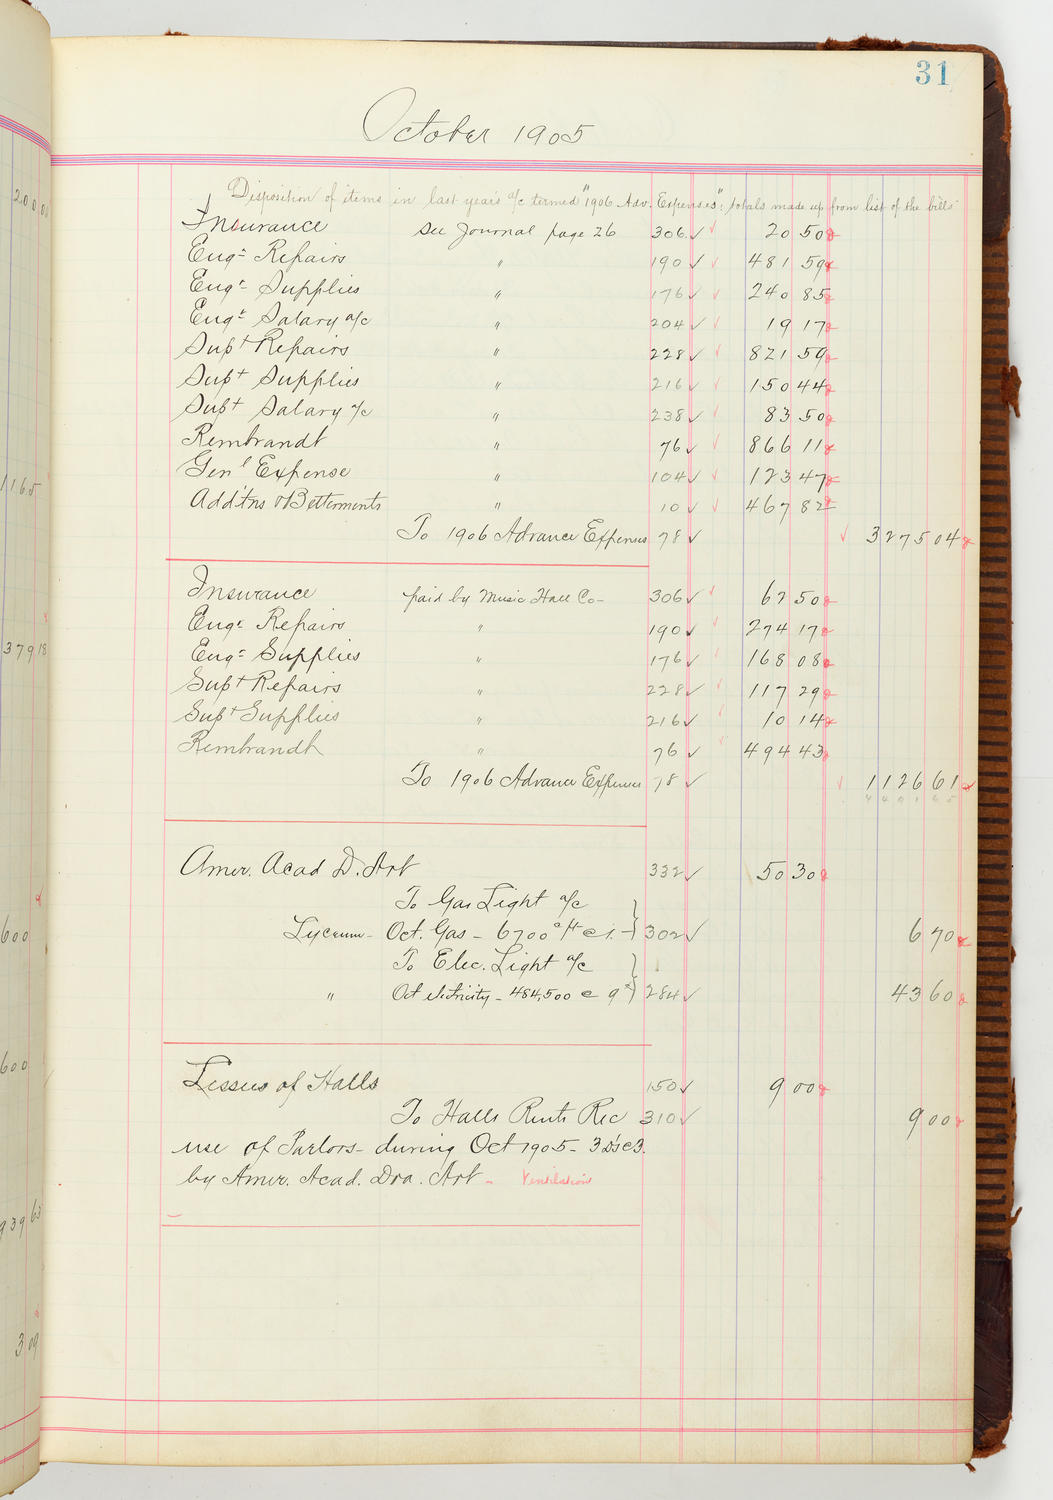 31
October 1905
Disposition of items in last year's a/c termed "1906 Adv. Expenses": totals made up from list of the bills
Insurance see Journal page 26 306 20 50
Engr Repairs " 190 481 59
Engr Supplies " 176 240 85
Engr Salary a/c " 204 19 17
Supt Repairs " 228 821 59
Supt Supplies " 216 150 44
Supt Salary a/c " 238 83 50
Rembrandt " 76 866 11
Genl Expense " 104 123 47
Addtns & Betterments " 10 467 82
To 1906 Advance Expenses 78 3275 04
Insurance paid by Music Hall Co- 306 62 50
Engr Repairs " 190 274 17
Engr Supplies " 176 168 08
Supt Repairs " 228 117 29
Supt Supplies " 216 10 14
Rembrandt " 76 494 43
To 1906 Advance Expenses 78 1126 61
4 4 0 1 6 5
Amer. Acad D. Art 332 50 30
To Gas Light a/c
Lyceum- Oct. Gas - 6700 c ft @ 1. - 302 6 70
To Elec. Light a/c
" Oct electricity - 484,500 @ 9 284 43 60
Lessees of Halls 150 9 00
To Halls Rents Rec 310 9 00
use of Parlors - during Oct 1905 - 3 D's @ 3.
by Amer. Acad. Dra. Art - Ventilation
200 00
1165
379 18
600
600
939 63
3 09